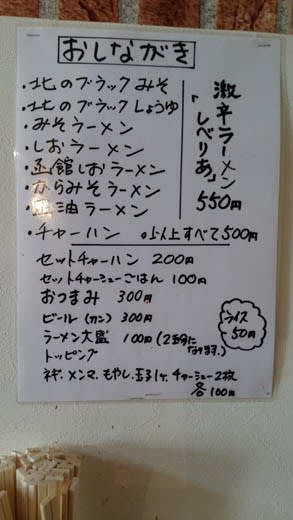 おしながき
・北のブラックみそ
・北のブラックしょうゆ
・みそラーメン
・しおラーメン
・函館しおラーメン
・からみそラーメン
油ラーメン
・チャーハン 以上すべて500円
激辛ラーメン
「しべりあ」
550円
セットチャーハン 200円
セットチャーシューごはん 100円
おつまみ 300円
ビール(カン) 300円
ラーメン大盛 100円(2玉分になります。)
トッピング
ネギ、メンマ、もやし、玉子1ヶ、チャーシュー2枚
各100円
ライス
50円